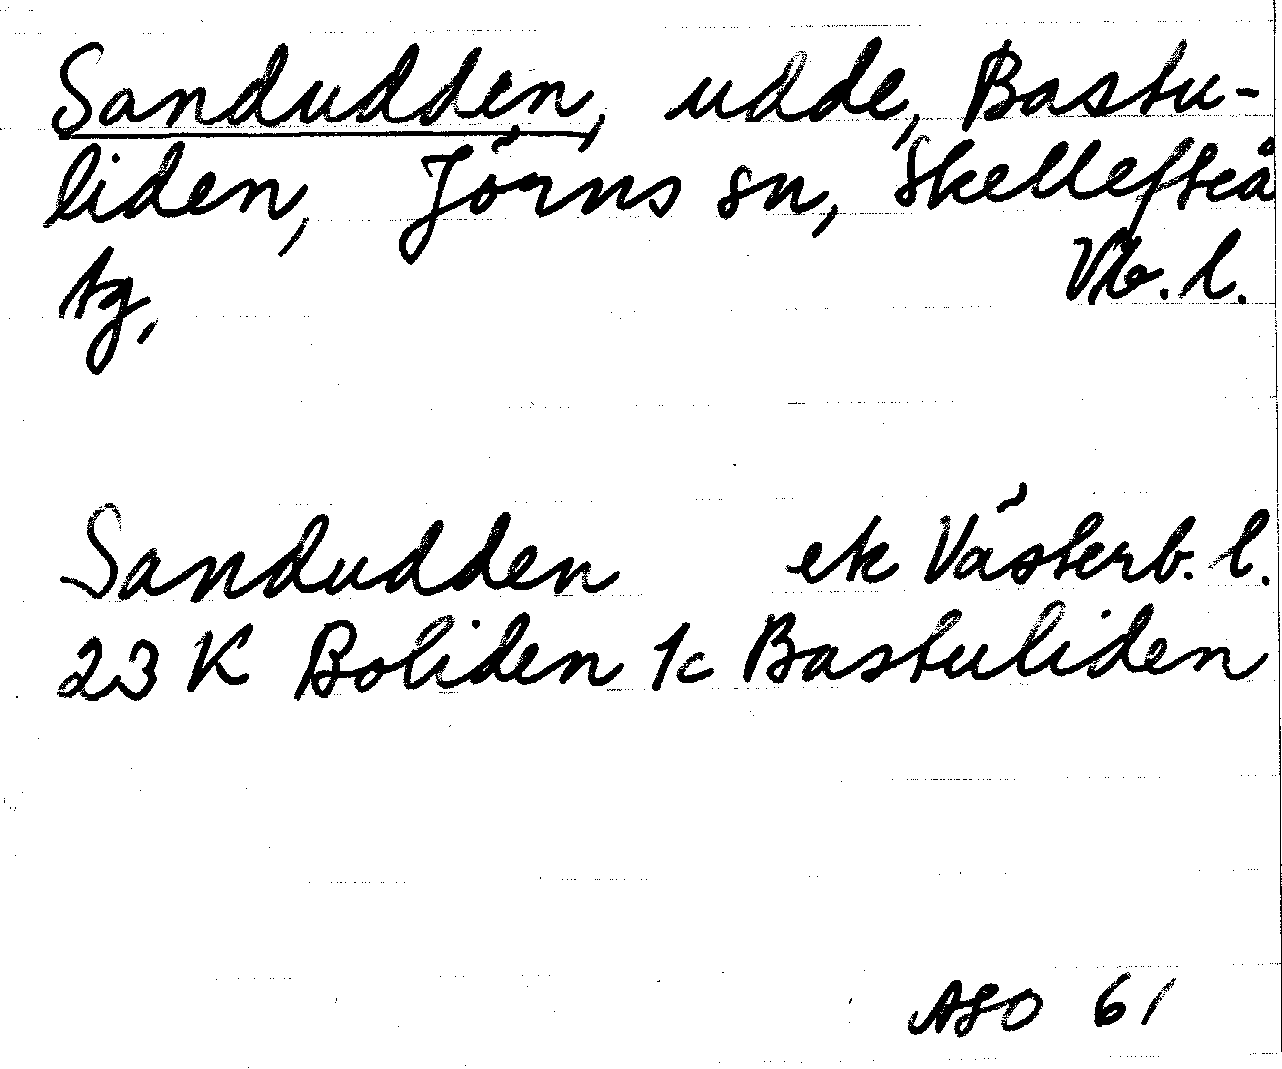 Sandudden, udde, Bastu-
liden, Jörns sn, Skellefteå
tg, Vb. l.
Sandudden ek Västerb. l.
23 K Boliden 1c Bastuliden
ASO 61